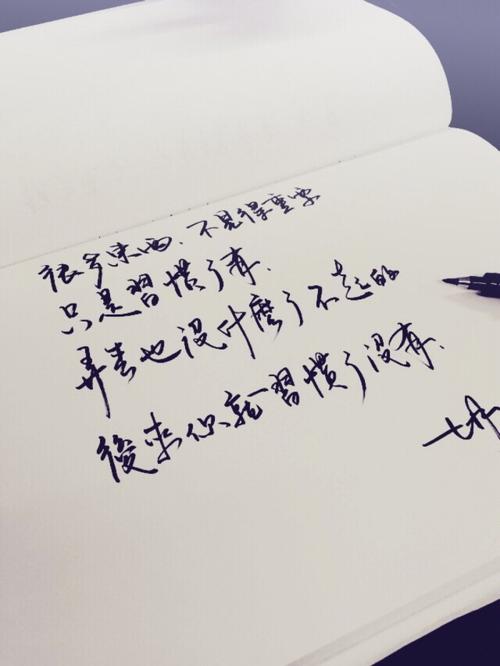 很多東西、不見得重要
只是習慣了有、
弄丟也没什麼了不起的
後來你就習慣了沒有、